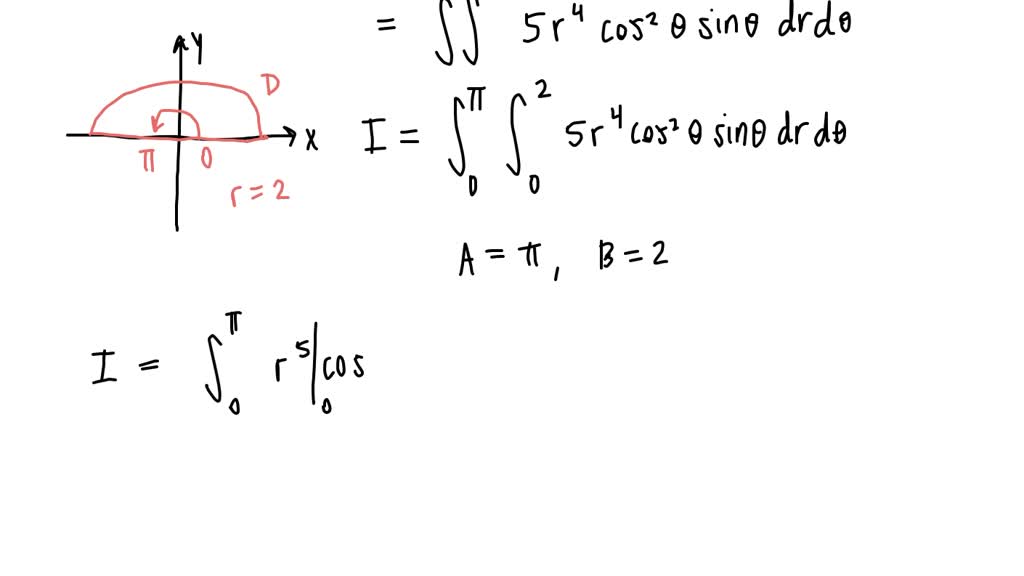 = ∬ 5r⁴ cos² θ sinθ dr dθ
y
D
x
π 0
r = 2
I = ∫₀^π ∫₀² 5r⁴ cos² θ sinθ dr dθ
A = π, B = 2
I = ∫₀^π r⁵|₀ cos